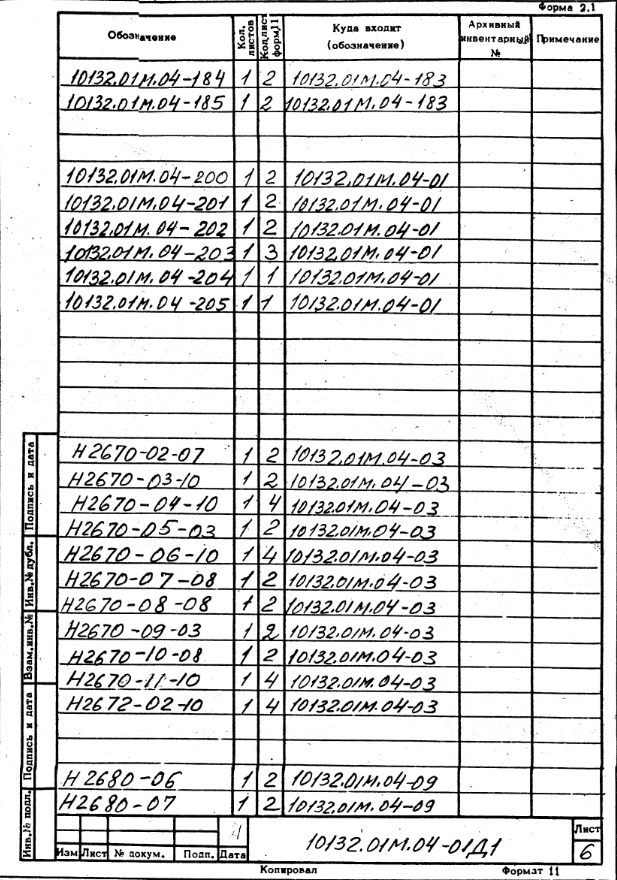 Форма 2.1
Обозначение Кол. листов Кол.лист форм.11 Куда входит (обозначение) Архивный инвентарный № Примечание
10132.01М.04-184 1 2 10132.01М.04-183
10132.01М.04-185 1 2 10132.01М.04-183
10132.01М.04-200 1 2 10132.01М.04-01
10132.01М.04-201 1 2 10132.01М.04-01
10132.01М.04-202 1 2 10132.01М.04-01
10132.01М.04-203 1 3 10132.01М.04-01
10132.01М.04-204 1 1 10132.01М.04-01
10132.01М.04-205 1 1 10132.01М.04-01
Н2670-02-07 1 2 10132.01М.04-03
Н2670-03-10 1 2 10132.01М.04-03
Н2670-04-10 1 4 10132.01М.04-03
Н2670-05-03 1 2 10132.01М.04-03
Н2670-06-10 1 4 10132.01М.04-03
Н2670-07-08 1 2 10132.01М.04-03
Н2670-08-08 1 2 10132.01М.04-03
Н2670-09-03 1 2 10132.01М.04-03
Н2670-10-08 1 2 10132.01М.04-03
Н2670-11-10 1 4 10132.01М.04-03
Н2672-02-10 1 4 10132.01М.04-03
Н2680-06 1 2 10132.01М.04-09
Н2680-07 1 2 10132.01М.04-09
Подпись и дата
Инв.№ дубл.
Взам.инв.№
Подпись и дата
Инв.№ подл.
Изм Лист № докум. Подп. Дата
10132.01М.04-01Д1
Лист
6
Копировал Формат 11